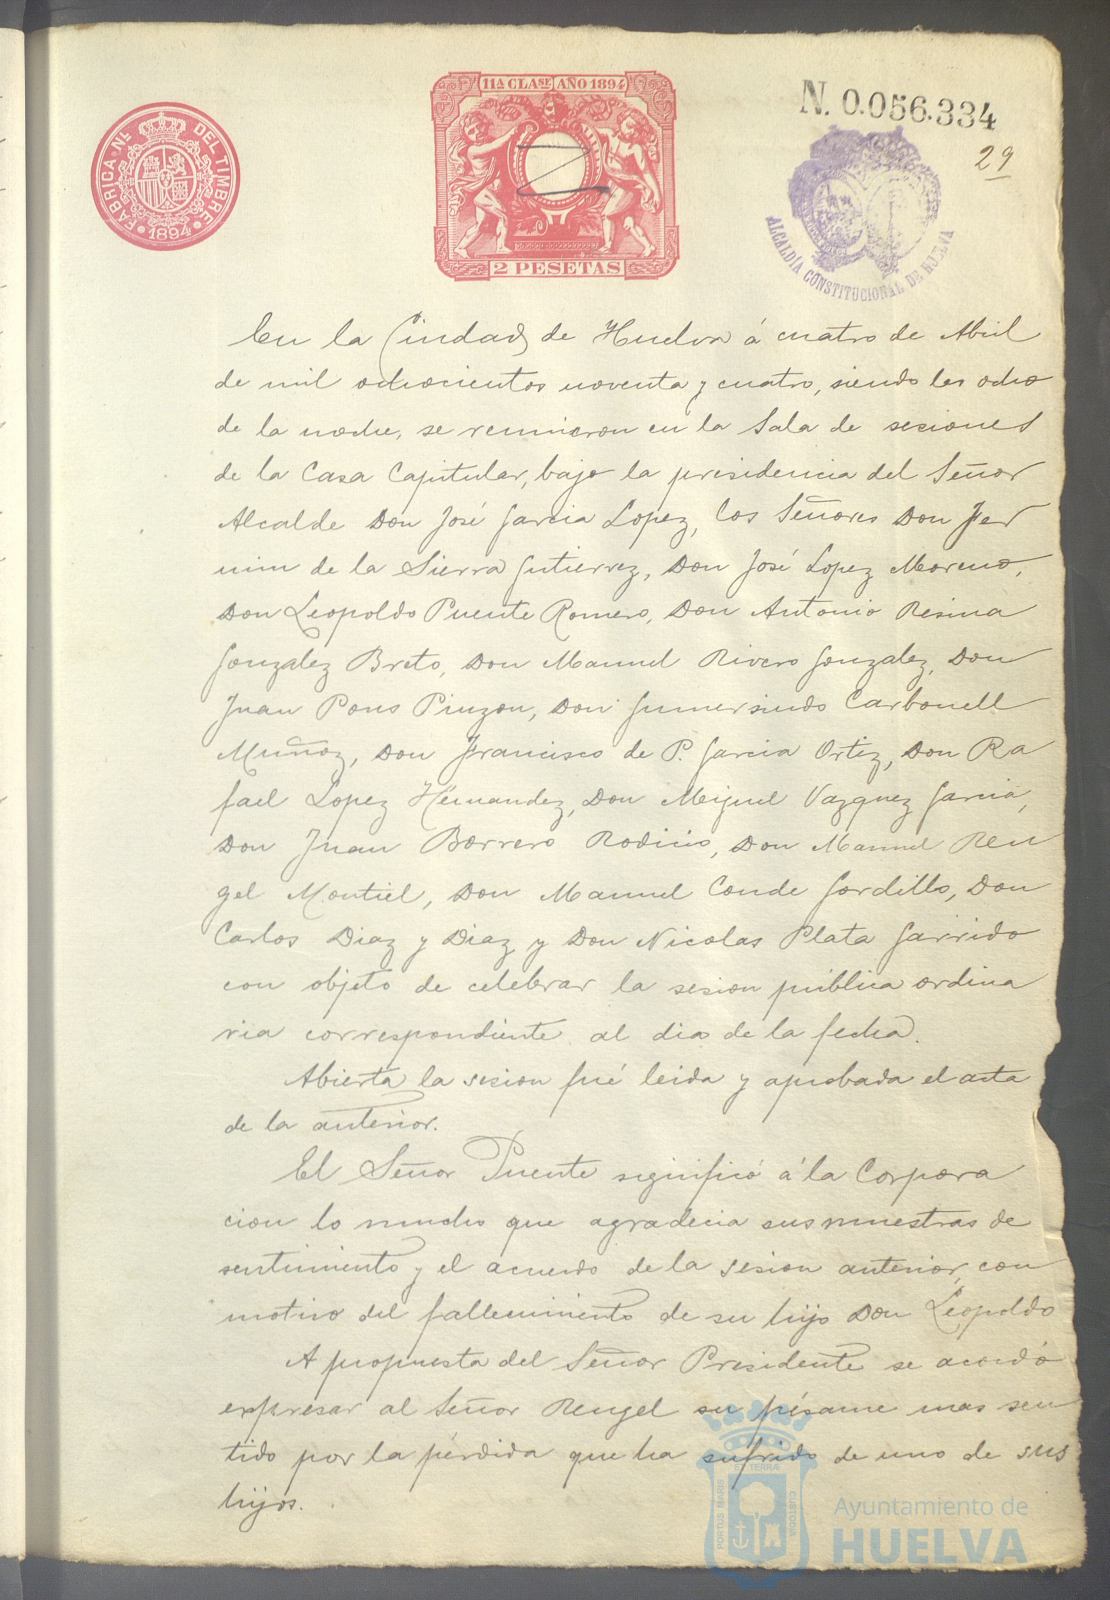 11ª CLASE AÑO 1894
N. 0.056.334
29
FABRICA NL DEL TIMBRE
1894
2 PESETAS
ALCALDÍA CONSTITUCIONAL DE HUELVA
En la Ciudad de Huelva á cuatro de Abril
de mil ochocientos noventa y cuatro, siendo las ocho
de la noche, se reunieron en la Sala de sesiones
de la Casa Capitular, bajo la presidencia del Señor
Alcalde Don José Garcia Lopez, los Señores Don Fer
min de la Sierra Gutierrez, Don José Lopez Moreno,
Don Leopoldo Puente Romero, Don Antonio Resina
Gonzalez Breto, Don Manuel Rivero Gonzalez, Don
Juan Pons Pinzon, Don Gumersindo Carbonell
Muñoz, Don Francisco de P. Garcia Ortiz, Don Ra
fael Lopez Hérnandez, Don Miguel Vazquez Garcia,
Don Juan Borrero Rodicio, Don Manuel Ren
gel Montiel, Don Manuel Conde Gordillo, Don
Carlos Diaz y Diaz y Don Nicolas Plata Garrido
con objeto de celebrar la sesion pública ordina
ria correspondiente al dia de la fecha.
Abierta la sesion fué leida y aprobada el acta
de la anterior.
El Señor Puente significó á la Corpora
cion lo mucho que agradecia sus muestras de
sentimiento y el acuerdo de la sesion anterior, con
motivo del fallecimiento de su hijo Don Leopoldo
A propuesta del Señor Presidente se acordó
expresar al Señor Rengel su pésame mas sen
tido por la pérdida que ha sufrido de uno de sus
hijos.
PORTUS MARIS ET TERRÆ CUSTODIA
Ayuntamiento de
HUELVA